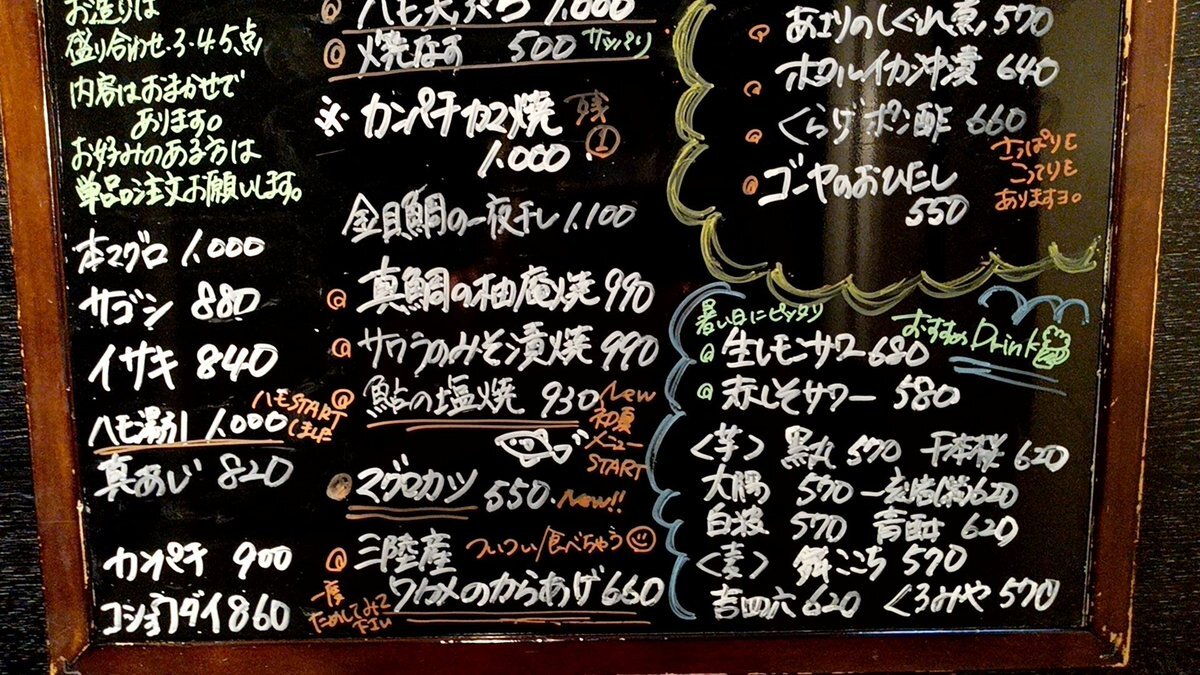 お造りは
盛り合わせ・3・4・5点
内容はおまかせで
あります。
お好みのある方は
単品の注文お願いします。
本マグロ 1.000
サゴシ 880
イサキ 840
ハモSTART
しました
ハモ湯引 1.000
真あじ 820
カンパチ 900
コショウダイ 860
ハモ天ぷら 1.000
焼なす 500 サッパリ
※ カンパチカマ焼 残
1.000 ①
金目鯛の一夜干し 1.100
真鯛の柚庵焼 990
サワラのみそ漬焼 990
鮎の塩焼 930 New
初夏
メニュー
START
マグロカツ 550 New!!
三陸産 ついつい食べちゃう
ワカメのからあげ 660
一度
ためしてみて
下さい
あさりのしぐれ煮 570
ホタルイカ沖漬 640
くらげポン酢 660
ゴーヤのおひたし
550
さっぱりも
こってりも
ありますヨ。
暑い日にピッタリ
おすすめDrink
生レモンサワー 680
赤しそサワー 580
〈芋〉 黒丸 570 千本桜 620
大隅 570 620
白波 570 620
〈麦〉 ここち 570
吉四六 620 くろみや 570